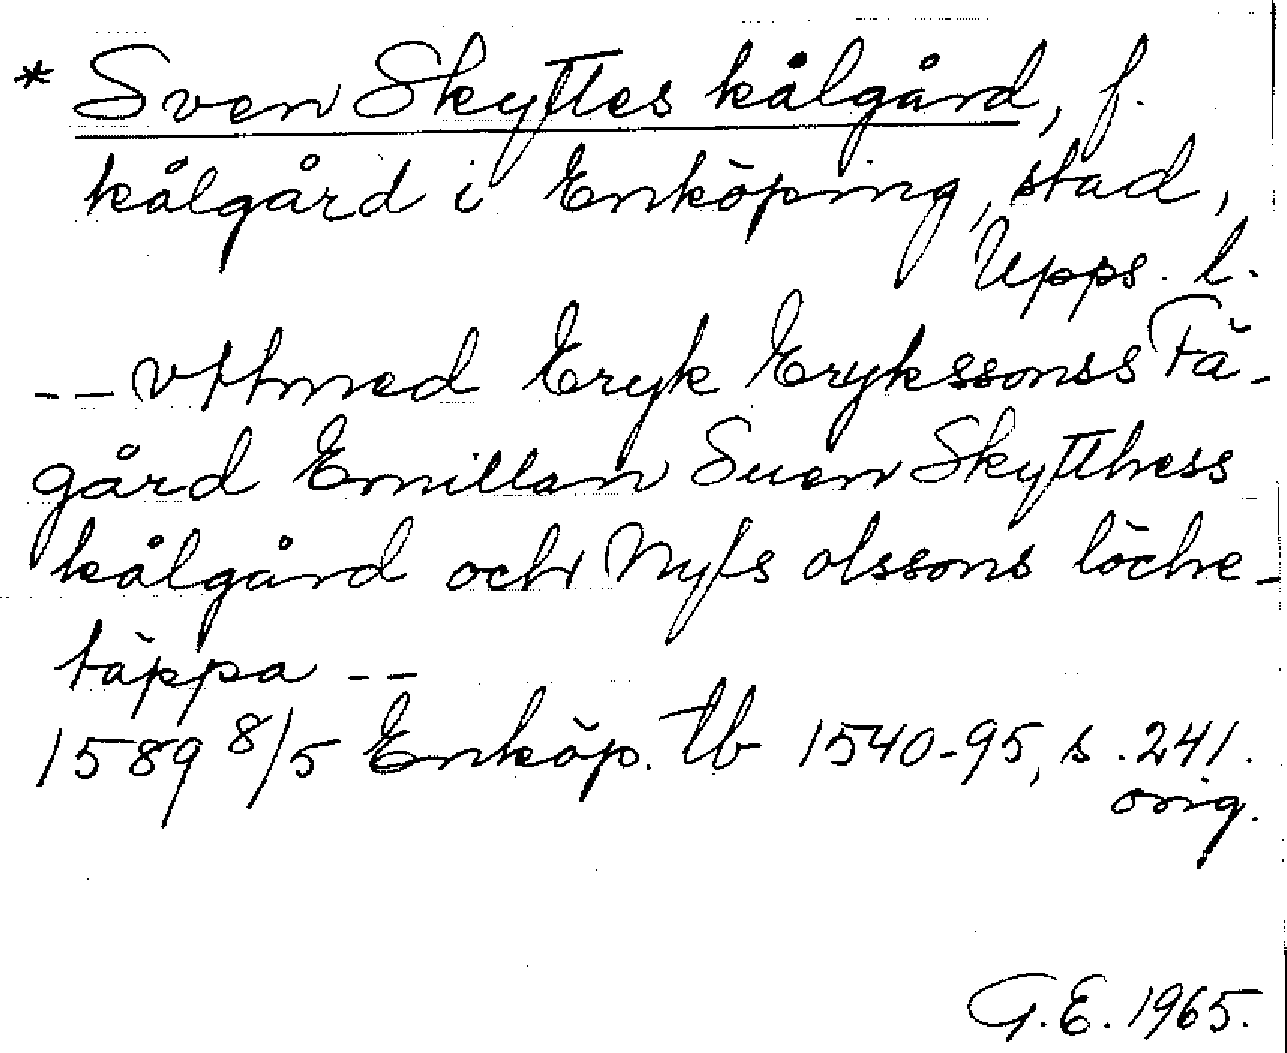 * Sven Skyttes kålgård, f.
kålgård i Enköping, stad,
Upps. l.
-- vttmed Eryk Erykssonss Fä-
gård Emillan Suen Skytthess
kålgård och Nyls olssons löche-
täppa --
1589 8/5 Enköp. tb 1540-95, s. 241.
orig.
G.E. 1965.